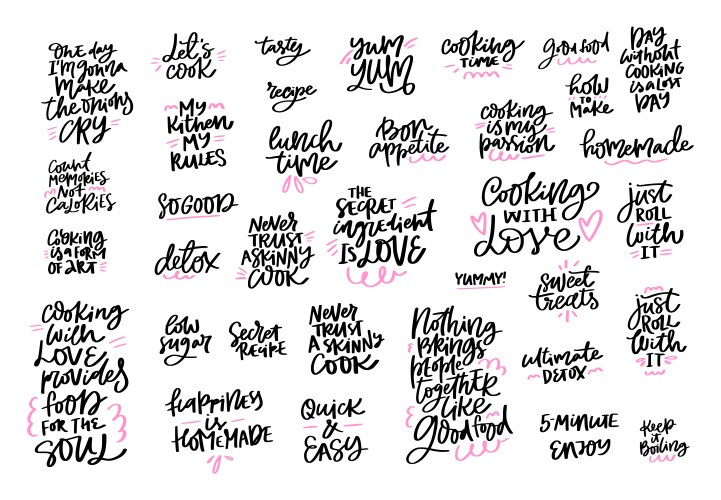 ONE day
I'M gonna
Make
the onions
CRY
Let's
cook
tasty
recipe
yum
YUM
cooking
TIME
good food
how
TO
Make
DAY
without
COOKING
is a LOST
DAY
My
Kitchen
MY
RULES
lunch
time
Bon
appetite
cooking
is my
passion
homemade
Count
MEMORIES
NOT
CALORIES
SO GOOD
THE
SECRET
ingredient
Is LOVE
Cooking
WITH
Love
just
ROLL
with
IT
Cooking
is a FORM
OF ART
detox
NEVER
TRUST
A SKINNY
COOK
YUMMY!
sweet
treats
just
ROLL
with
IT
cooking
with
LOVE
provides
fOOD
FOR THE
SOUL
low
sugar
Secret
RECIPE
NEVER
TRUST
A SKINNY
COOK
Nothing
BRINGS
people
togethER
like
good food
ultimate
DETOX
happiNEss
is
HOMEMADE
QUICK
&
EASY
5-MINUTE
ENJOY
Keep
it
Boiling